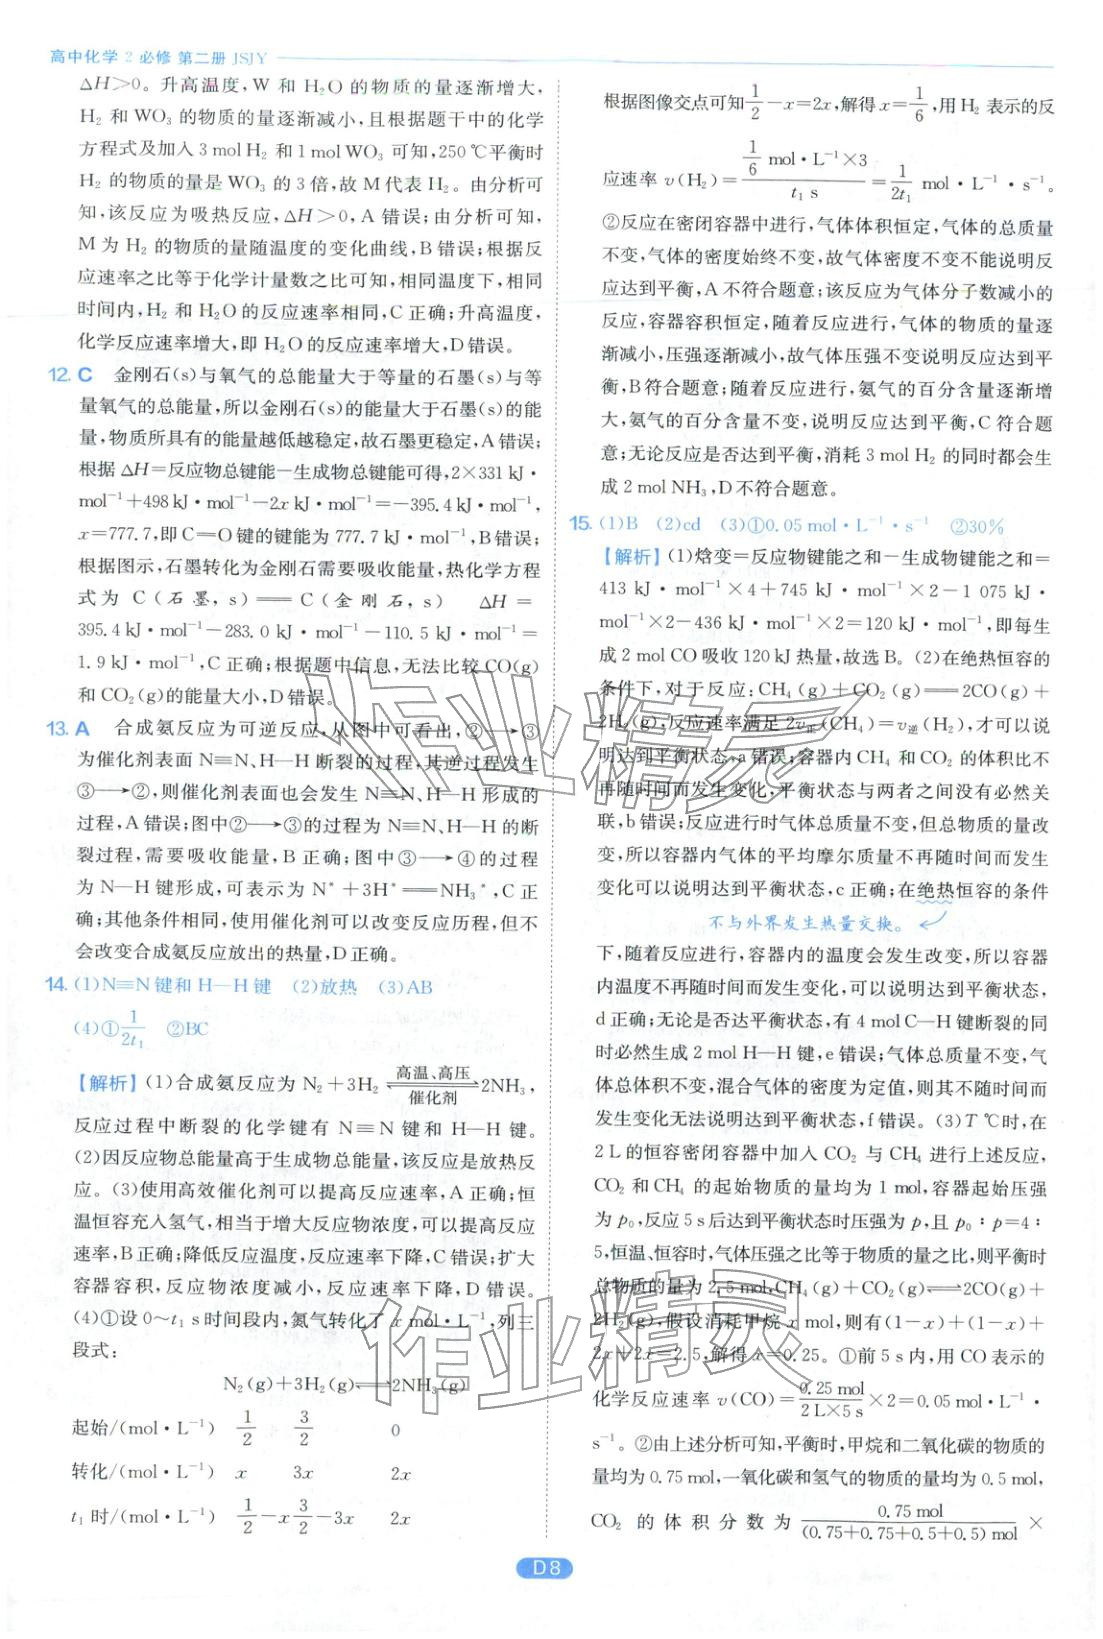 高中化学 2 必修 第二册 JSJY
ΔH>0。升高温度,W 和 H₂O 的物质的量逐渐增大,
H₂ 和 WO₃ 的物质的量逐渐减小,且根据题干中的化学
方程式及加入 3 mol H₂ 和 1 mol WO₃ 可知,250 ℃平衡时
H₂ 的物质的量是 WO₃ 的 3 倍,故 M 代表 H₂。由分析可
知,该反应为吸热反应,ΔH>0,A 错误;由分析可知,
M 为 H₂ 的物质的量随温度的变化曲线,B 错误;根据反
应速率之比等于化学计量数之比可知,相同温度下,相同
时间内,H₂ 和 H₂O 的反应速率相同,C 正确;升高温度,
化学反应速率增大,即 H₂O 的反应速率增大,D 错误。
12. C 金刚石(s)与氧气的总能量大于等量的石墨(s)与等
量氧气的总能量,所以金刚石(s)的能量大于石墨(s)的能
量,物质所具有的能量越低越稳定,故石墨更稳定,A 错误;
根据 ΔH=反应物总键能-生成物总键能可得,2×331 kJ·
mol⁻¹+498 kJ·mol⁻¹-2x kJ·mol⁻¹=-395.4 kJ·mol⁻¹,
x=777.7,即 C=O 键的键能为 777.7 kJ·mol⁻¹,B 错误;
根据图示,石墨转化为金刚石需要吸收能量,热化学方程
式为 C(石墨,s)══C(金刚石,s) ΔH=
395.4 kJ·mol⁻¹-283.0 kJ·mol⁻¹-110.5 kJ·mol⁻¹=
1.9 kJ·mol⁻¹,C 正确;根据题中信息,无法比较 CO(g)
和 CO₂(g)的能量大小,D 错误。
13. A 合成氨反应为可逆反应,从图中可看出,②→③
为催化剂表面 N≡N、H—H 断裂的过程,其逆过程发生
③→②,则催化剂表面也会发生 N≡N、H—H 形成的
过程,A 错误;图中②→③的过程为 N≡N、H—H 的断
裂过程,需要吸收能量,B 正确;图中③→④的过程
为 N—H 键形成,可表示为 N*+3H*══NH₃*,C 正
确;其他条件相同,使用催化剂可以改变反应历程,但不
会改变合成氨反应放出的热量,D 正确。
14. (1)N≡N 键和 H—H 键 (2)放热 (3)AB
(4)①1/(2t₁) ②BC
【解析】(1)合成氨反应为 N₂+3H₂ ⇌(高温、高压/催化剂) 2NH₃,
反应过程中断裂的化学键有 N≡N 键和 H—H 键。
(2)因反应物总能量高于生成物总能量,该反应是放热反
应。(3)使用高效催化剂可以提高反应速率,A 正确;恒
温恒容充入氢气,相当于增大反应物浓度,可以提高反应
速率,B 正确;降低反应温度,反应速率下降,C 错误;扩大
容器容积,反应物浓度减小,反应速率下降,D 错误。
(4)①设 0~t₁ s 时间段内,氮气转化了 x mol·L⁻¹,列三
段式:
N₂(g)+3H₂(g)⇌2NH₃(g)
起始/(mol·L⁻¹) 1/2 3/2 0
转化/(mol·L⁻¹) x 3x 2x
t₁ 时/(mol·L⁻¹) 1/2-x 3/2-3x 2x
根据图像交点可知 1/2-x=2x,解得 x=1/6,用 H₂ 表示的反
应速率 v(H₂)=(1/6 mol·L⁻¹×3)/(t₁ s)=1/(2t₁) mol·L⁻¹·s⁻¹。
②反应在密闭容器中进行,气体体积恒定,气体的总质量
不变,气体的密度始终不变,故气体密度不变不能说明反
应达到平衡,A 不符合题意;该反应为气体分子数减小的
反应,容器容积恒定,随着反应进行,气体的物质的量逐
渐减小,压强逐渐减小,故气体压强不变说明反应达到平
衡,B 符合题意;随着反应进行,氨气的百分含量逐渐增
大,氨气的百分含量不变,说明反应达到平衡,C 符合题
意;无论反应是否达到平衡,消耗 3 mol H₂ 的同时都会生
成 2 mol NH₃,D 不符合题意。
15. (1)B (2)cd (3)①0.05 mol·L⁻¹·s⁻¹ ②30%
【解析】(1)焓变=反应物键能之和-生成物键能之和=
413 kJ·mol⁻¹×4+745 kJ·mol⁻¹×2-1 075 kJ·
mol⁻¹×2-436 kJ·mol⁻¹×2=120 kJ·mol⁻¹,即每生
成 2 mol CO 吸收 120 kJ 热量,故选 B。(2)在绝热恒容的
条件下,对于反应:CH₄(g)+CO₂(g)══2CO(g)+
2H₂(g),反应速率满足 2v正(CH₄)=v逆(H₂),才可以说
明达到平衡状态,a 错误;容器内 CH₄ 和 CO₂ 的体积比不
再随时间而发生变化,平衡状态与两者之间没有必然关
联,b 错误;反应进行时气体总质量不变,但总物质的量改
变,所以容器内气体的平均摩尔质量不再随时间而发生
变化可以说明达到平衡状态,c 正确;在绝热恒容的条件
不与外界发生热量交换。
下,随着反应进行,容器内的温度会发生改变,所以容器
内温度不再随时间而发生变化,可以说明达到平衡状态,
d 正确;无论是否达平衡状态,有 4 mol C—H 键断裂的同
时必然生成 2 mol H—H 键,e 错误;气体总质量不变,气
体总体积不变,混合气体的密度为定值,则其不随时间而
发生变化无法说明达到平衡状态,f 错误。(3)T ℃时,在
2 L 的恒容密闭容器中加入 CO₂ 与 CH₄ 进行上述反应,
CO₂ 和 CH₄ 的起始物质的量均为 1 mol,容器起始压强
为 p₀,反应 5 s 后达到平衡状态时压强为 p,且 p₀∶p=4∶
5,恒温、恒容时,气体压强之比等于物质的量之比,则平衡时
总物质的量为 2.5 mol,CH₄(g)+CO₂(g)⇌2CO(g)+
2H₂(g),假设消耗甲烷 x mol,则有(1-x)+(1-x)+
2x+2x=2.5,解得 x=0.25。①前 5 s 内,用 CO 表示的
化学反应速率 v(CO)=0.25 mol/(2 L×5 s)×2=0.05 mol·L⁻¹·
s⁻¹。②由上述分析可知,平衡时,甲烷和二氧化碳的物质的
量均为 0.75 mol,一氧化碳和氢气的物质的量均为 0.5 mol,
CO₂ 的体积分数为 0.75 mol/((0.75+0.75+0.5+0.5) mol) ×
D8
作业精灵
作业精灵